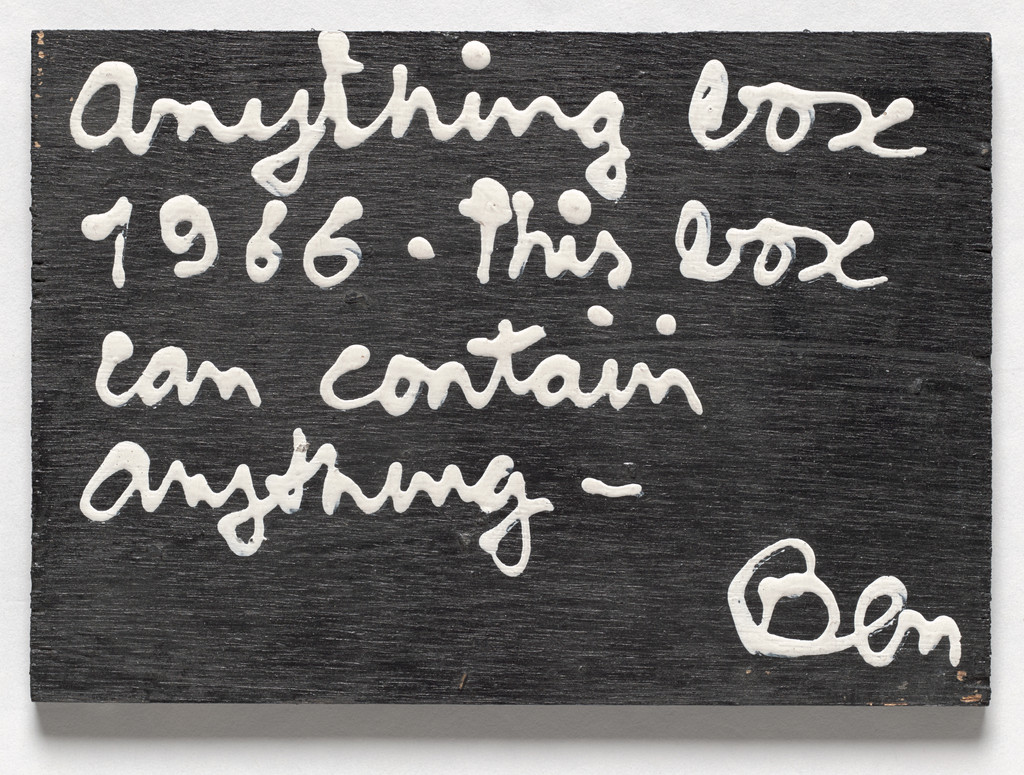 anything box
1966 . This box
can contain
anything –
Ben